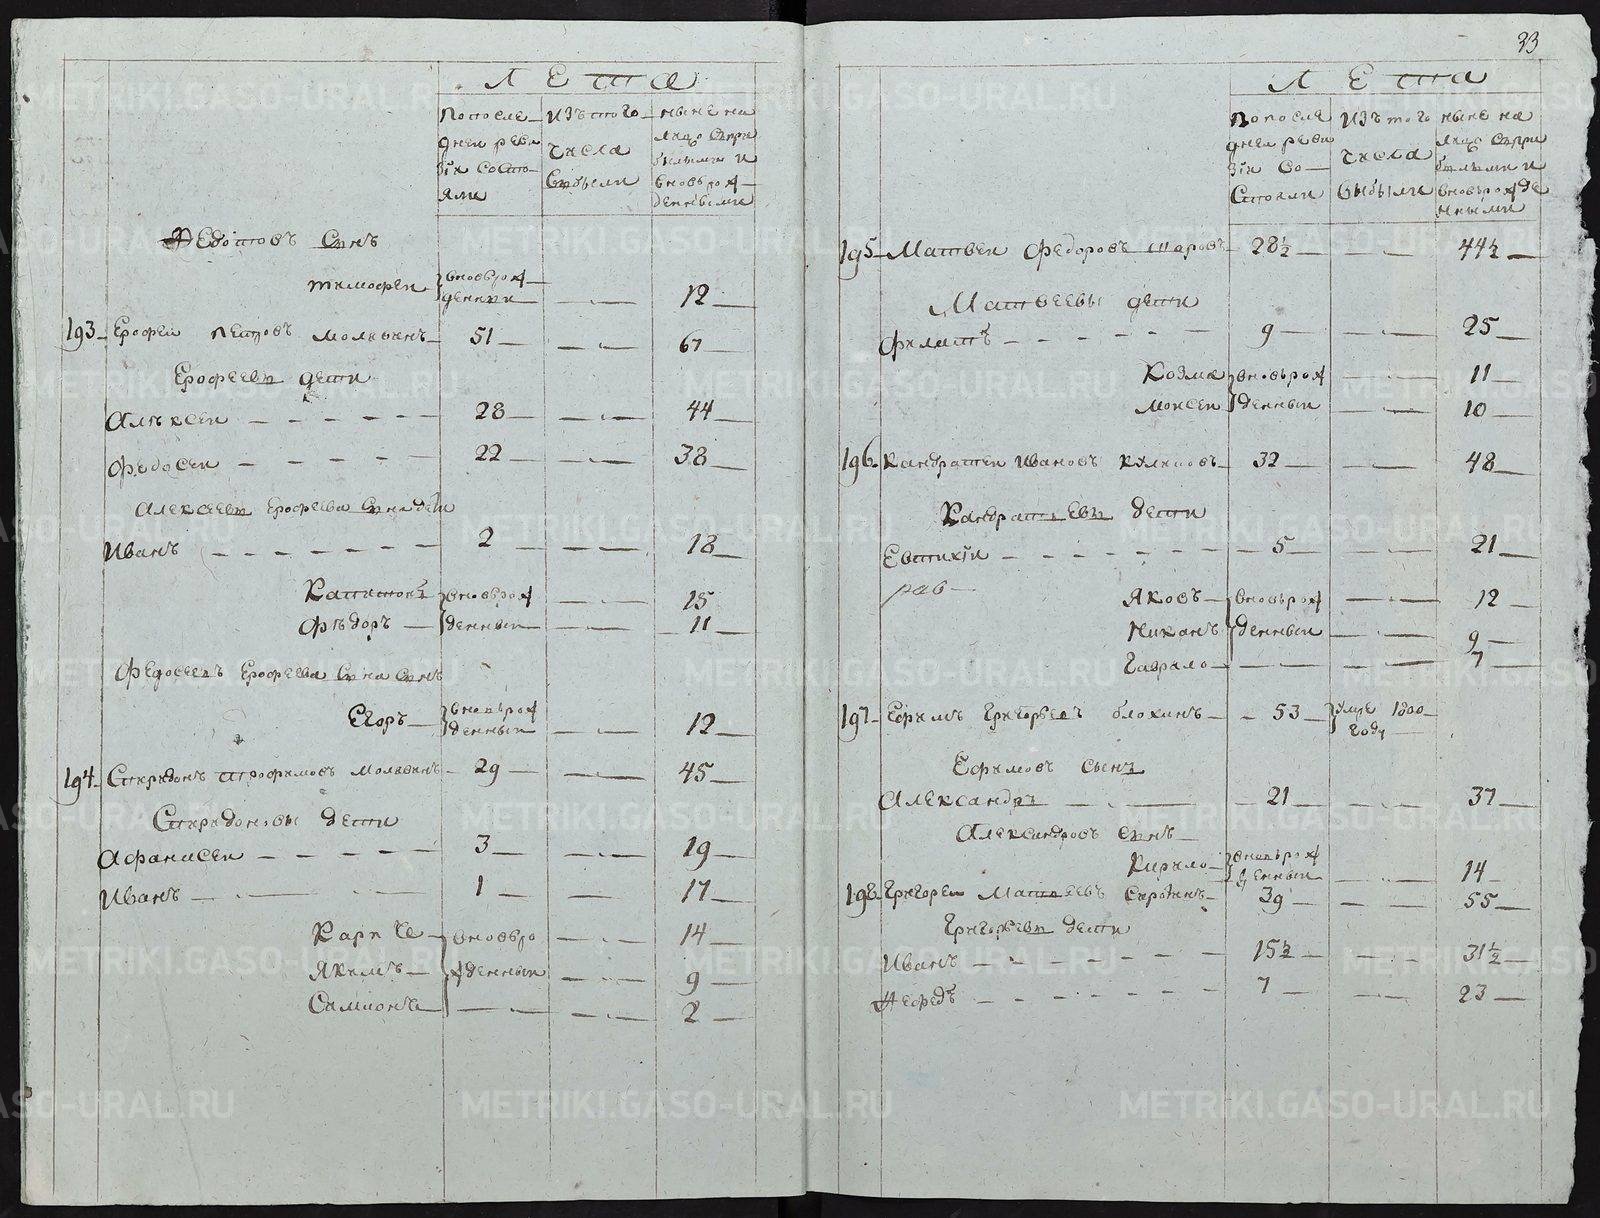 Лета
По после
дней реви
зіи состо
яли
Изъ того
числа
выбыли
ныне на
лицо съ при
былыми и
вновь рож
денными
Федотовъ сынъ
Тимофей вновь рож
денный 12
193 Ерофей Петровъ 51 67
Ерофеевы дети
Алексей 28 44
Федосей 22 38
Алексеевы Ерофеева сына дети
Иванъ 2 18
Капитонъ вновь рож 15
Федоръ денныи 11
Федосеевъ Ерофеева сына сынъ
Егоръ вновь рож
денныи 12
194 Спиридонъ Трофимовъ 29 45
Спиридоновы дети
Афанасей 3 19
Иванъ 1 17
Карпъ вновь ро 14
Якимъ жденныи 9
Самсонъ 2
33
Лета
По после
дней реви
зіи со
стояли
Изъ того
числа
выбыли
ныне на
лицо съ при
былыми и
вновь рожде
нными
195 Матвей Федоровъ Шаровъ 28½ 44½
Матвеевы дети
Филатъ 9 25
Козма вновь рож 11
Моисей денныи 10
196 Кандратей Ивановъ Куликовъ 32 48
Кандратьевы дети
Евтихіи 5 21
Яковъ вновь рож 12
Никанъ денныи 9
Гаврило 7
197 Ефимъ Григорьевъ Блохинъ 53 умре 1800
году
Ефимовъ сынъ
Александръ 21 37
Александровъ сынъ
Кирило вновь рож
денныи 14
198 Григорей Матвеевъ 39 55
Григорьевы дети
Иванъ 15½ 31½
Нефедъ 7 23
METRIKI.GASO-URAL.RU